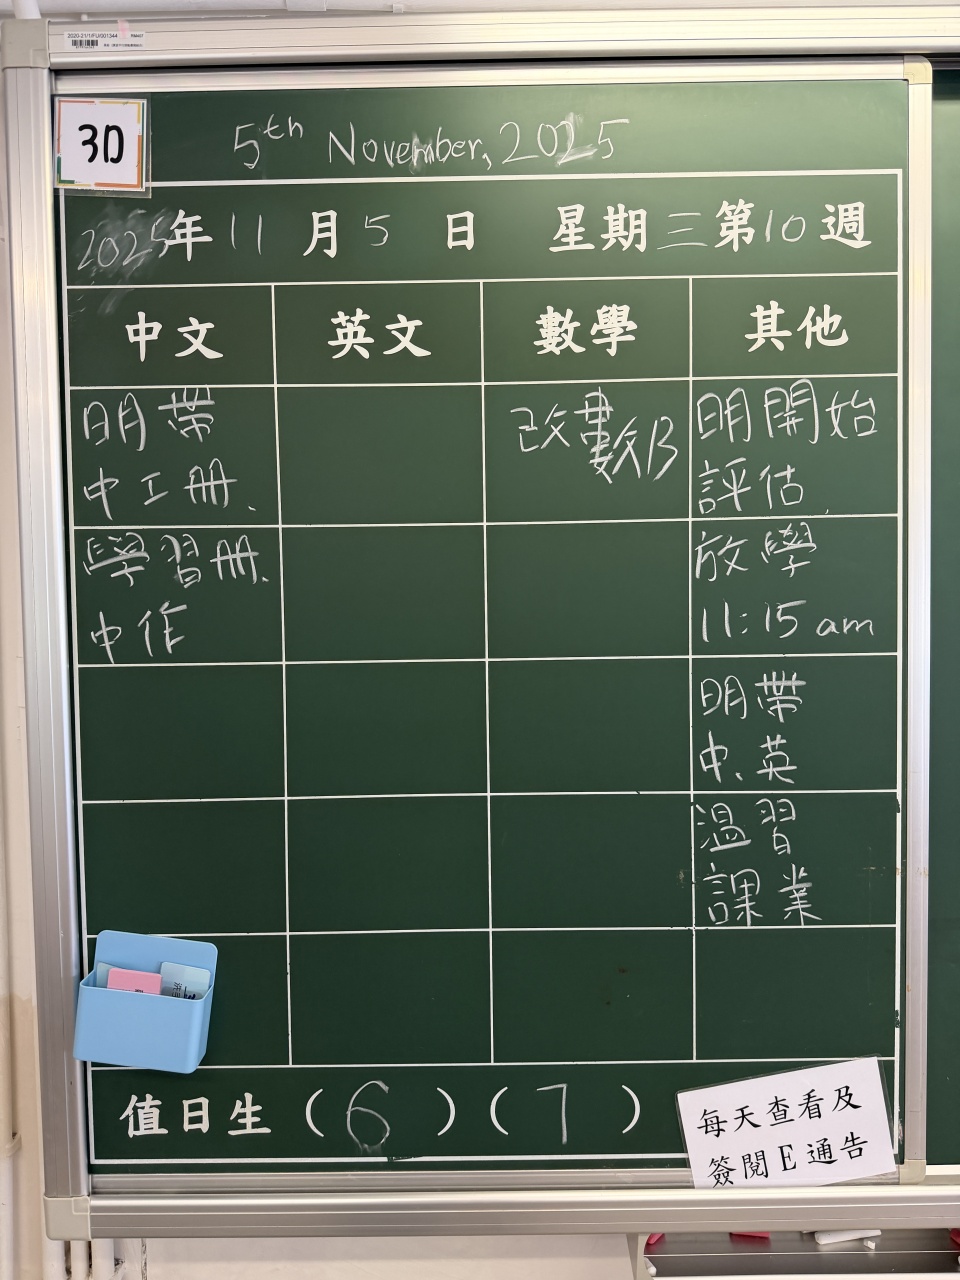 2020-21/1/FU/001344
3D
5th November, 2025
2025年11月5日 星期三第10週
中文 英文 數學 其他
明帶
中工冊.
學習冊.
中作
改書數B
明開始
評估.
放學
11:15am
明帶
中、英
溫習
課業
值日生(6)(7)
每天查看及
簽閱E通告